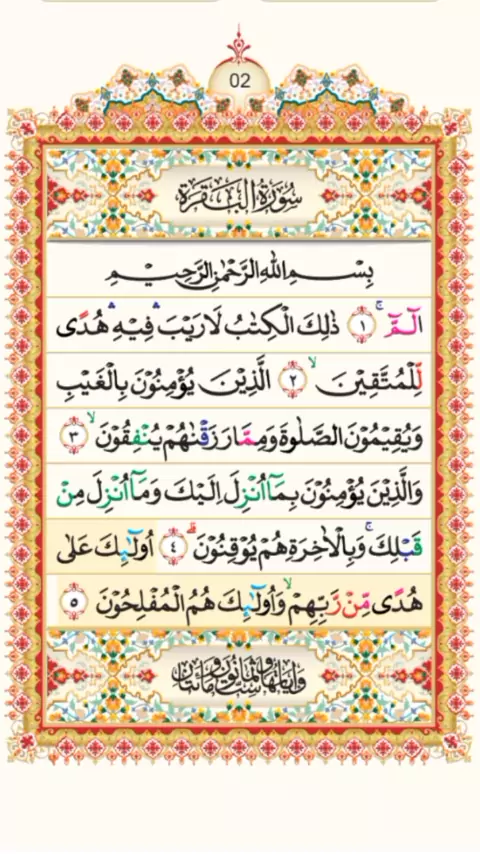 02
سُورَةُ الْبَقَرَةِ
بِسْمِ اللهِ الرَّحْمٰنِ الرَّحِيْمِ
الٓمّٓ ۚ ﴿١﴾ ذٰلِكَ الْكِتٰبُ لَا رَيْبَ ۛ فِيْهِ ۛ هُدًى
لِّلْمُتَّقِيْنَ ۙ ﴿٢﴾ الَّذِيْنَ يُؤْمِنُوْنَ بِالْغَيْبِ
وَيُقِيْمُوْنَ الصَّلٰوةَ وَمِمَّا رَزَقْنٰهُمْ يُنْفِقُوْنَ ۙ ﴿٣﴾
وَالَّذِيْنَ يُؤْمِنُوْنَ بِمَآ اُنْزِلَ اِلَيْكَ وَمَآ اُنْزِلَ مِنْ
قَبْلِكَ ۚ وَبِالْاٰخِرَةِ هُمْ يُوْقِنُوْنَ ۗ ﴿٤﴾ اُولٰٓئِكَ عَلٰى
هُدًى مِّنْ رَّبِّهِمْ ۙ وَاُولٰٓئِكَ هُمُ الْمُفْلِحُوْنَ ﴿٥﴾